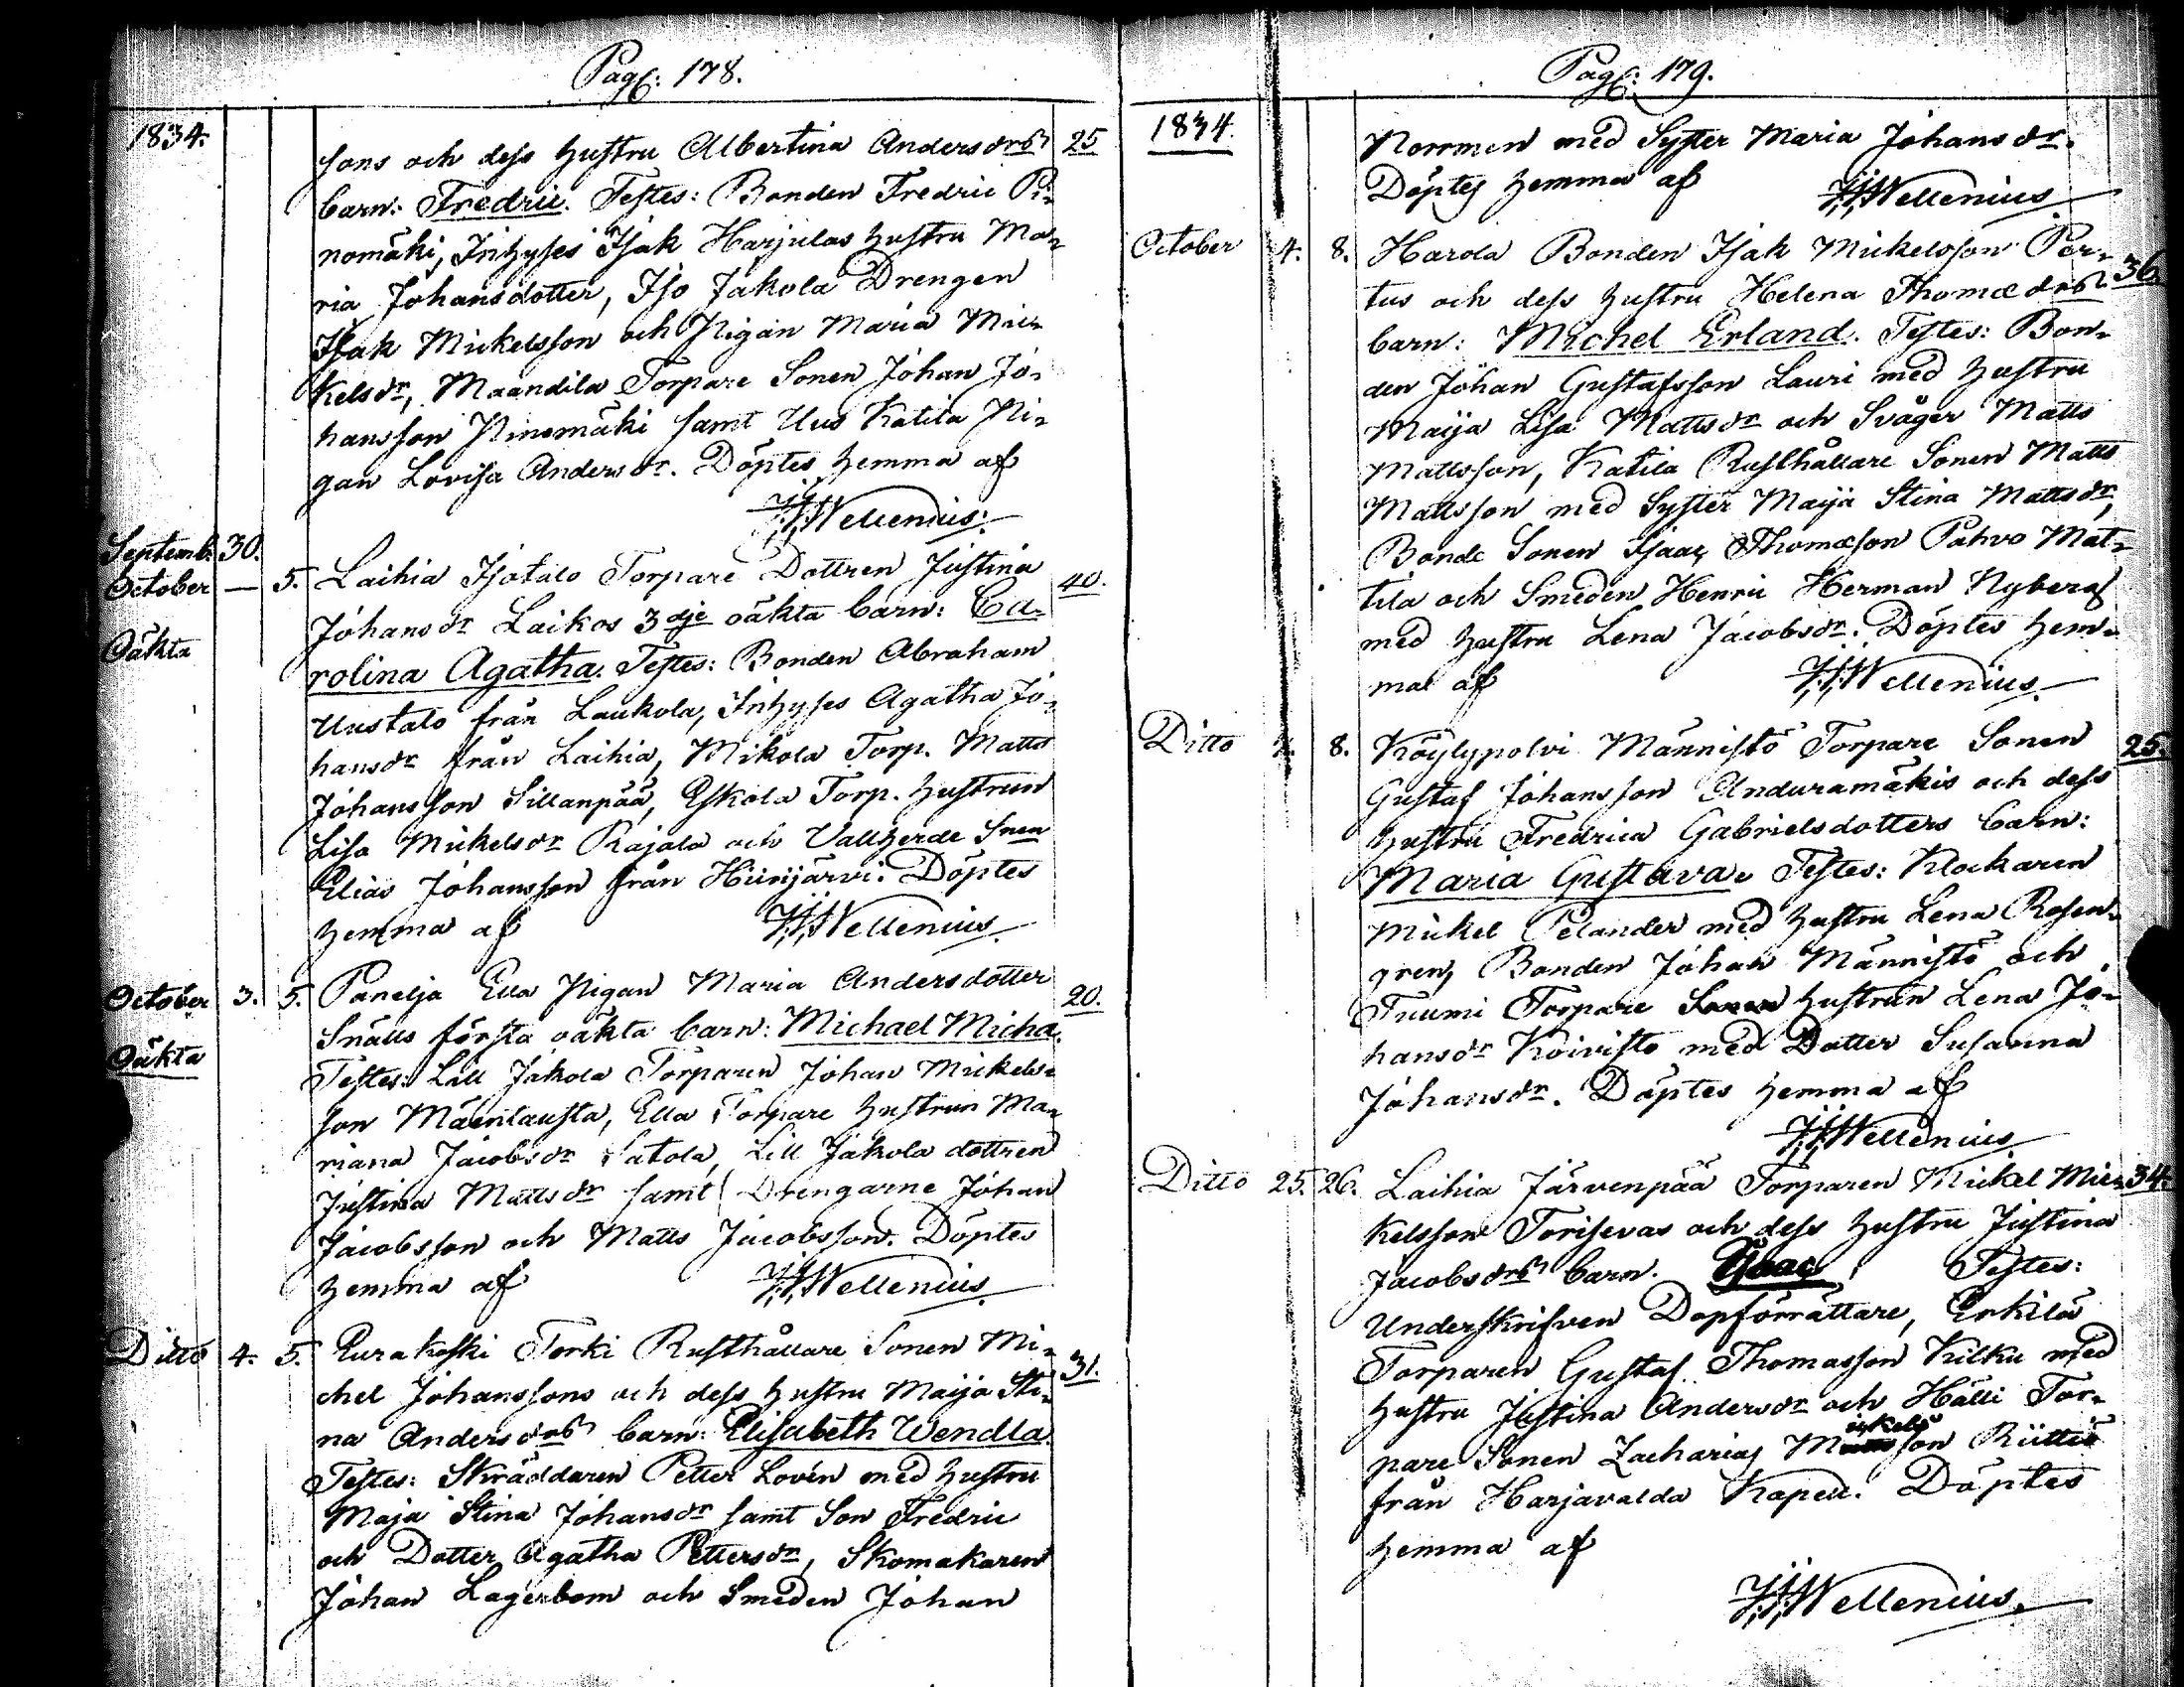 Pag: 178.
1834.
sons och dess hustru Albertina Andersdrs 25
barn: Fredric. Testes: Bonden Fredric Pi-
nomäki, Inhyses Isak Harjulas hustru Ma-
ria Johansdotter, Iso Jakola Drengen
Isak Mickelsson och Pigan Maria Mic-
kelsdr, Maandila Torpare Sonen Johan Jo-
hansson Ninomäki samt Uus Katila Pi-
gan Lovisa Andersdr. Döptes hemma af
J.J. Wellenius.
Septemb. 30.
October — 5. Laihia Isotalo Torpare Dottren Justina 40.
Johansdr Laikos 3dje oäkta barn: Ca-
Oäkta
rolina Agatha. Testes: Bonden Abraham
Uustalo från Laukola, Inhyses Agatha Jo-
hansdr från Laihia, Mikola Torp. Matts
Johansson Sillanpää, Eskola Torp. hustrun
Lisa Mickelsdr Rajala och Vallherde Snen
Elias Johansson från Hiirijärvi. Döptes
hemma af J.J. Wellenius
October 3. 5. Panelja Ella Pigan Maria Andersdotter 20.
Snälls första oäkta barn: Michael Micha.
Oäkta
Testes: Lill Jakola Torparen Johan Mickels-
son Mäentausta, Ella Torpare hustrun Ma-
riana Jacobsdr Satola, Lill Jakola dottren
Justina Mattsdr samt Drengarne Johan
Jacobsson och Matts Jacobsson. Döptes
hemma af J.J. Wellenius
Ditto 4. 5. Eurakoski Torki Rusthållare Sonen Mi- 31.
chel Johanssons och dess hustru Maija Sti-
na Andersdrs barn: Elisabeth Wendla.
Testes: Skräddaren Petter Lovén med hustru
Maja Stina Johansdr samt Son Fredric
och Dotter Agatha Pettersdr, Skomakaren
Johan Lagerbom och Smeden Johan
Pag: 179.
1834.
Norrmen med Syster Maria Johansdr.
Döptes hemma af J.J. Wellenius
October 4. 8. Harola Bonden Isak Mickelsson Per-
tus och dess hustru Helena Thomædrs 36.
barn: Michel Erland. Testes: Bon-
den Johan Gustafsson Lauri med hustru
Maija Lisa Mattsdr och Svåger Matts
Mattsson, Katila Rusthållare Sonen Matts
Mattsson med Syster Maija Stina Mattsdr,
Bonde Sonen Isaac Thomæson Pahvo Mat-
tila och Smeden Henric Herman Nyberg
med hustru Lena Jacobsdr. Döptes hem-
ma af J.J. Wellenius
Ditto 8. Köylypolvi Männistö Torpare Sonen 25.
Gustaf Johansson Anduramäkis och dess
hustru Fredrica Gabrielsdotters barn:
Maria Gustava. Testes: Klockaren
Mickel Pelander med hustru Lena Rosen-
gren, Bonden Johan Männistö och
Tuumi Torpare hustrun Lena Jo-
hansdr Koivisto med Dotter Susanna
Johansdr. Döptes hemma af
J.J. Wellenius
Ditto 25. 26. Laihia Järvenpää Torparen Mickel Mic- 34.
kelsson Torisevas och dess hustru Justina
Jacobsdrs barn. Isaac. Testes:
Underskrifven Dopförrättare, Erkilä
Torparen Gustaf Thomasson Kilku med
hustru Justina Andersdr och Hälli Tor-
pare Sonen Zacharias Mickelsson Riittiö
från Harjavalda Kapell. Döptes
hemma af
J.J. Wellenius.